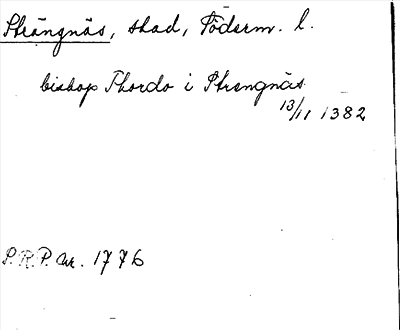 Strängnäs, stad, Söderm. l.
biskop Thordo i Strengnäs
13/11 1382
S.R.P. nr. 1776